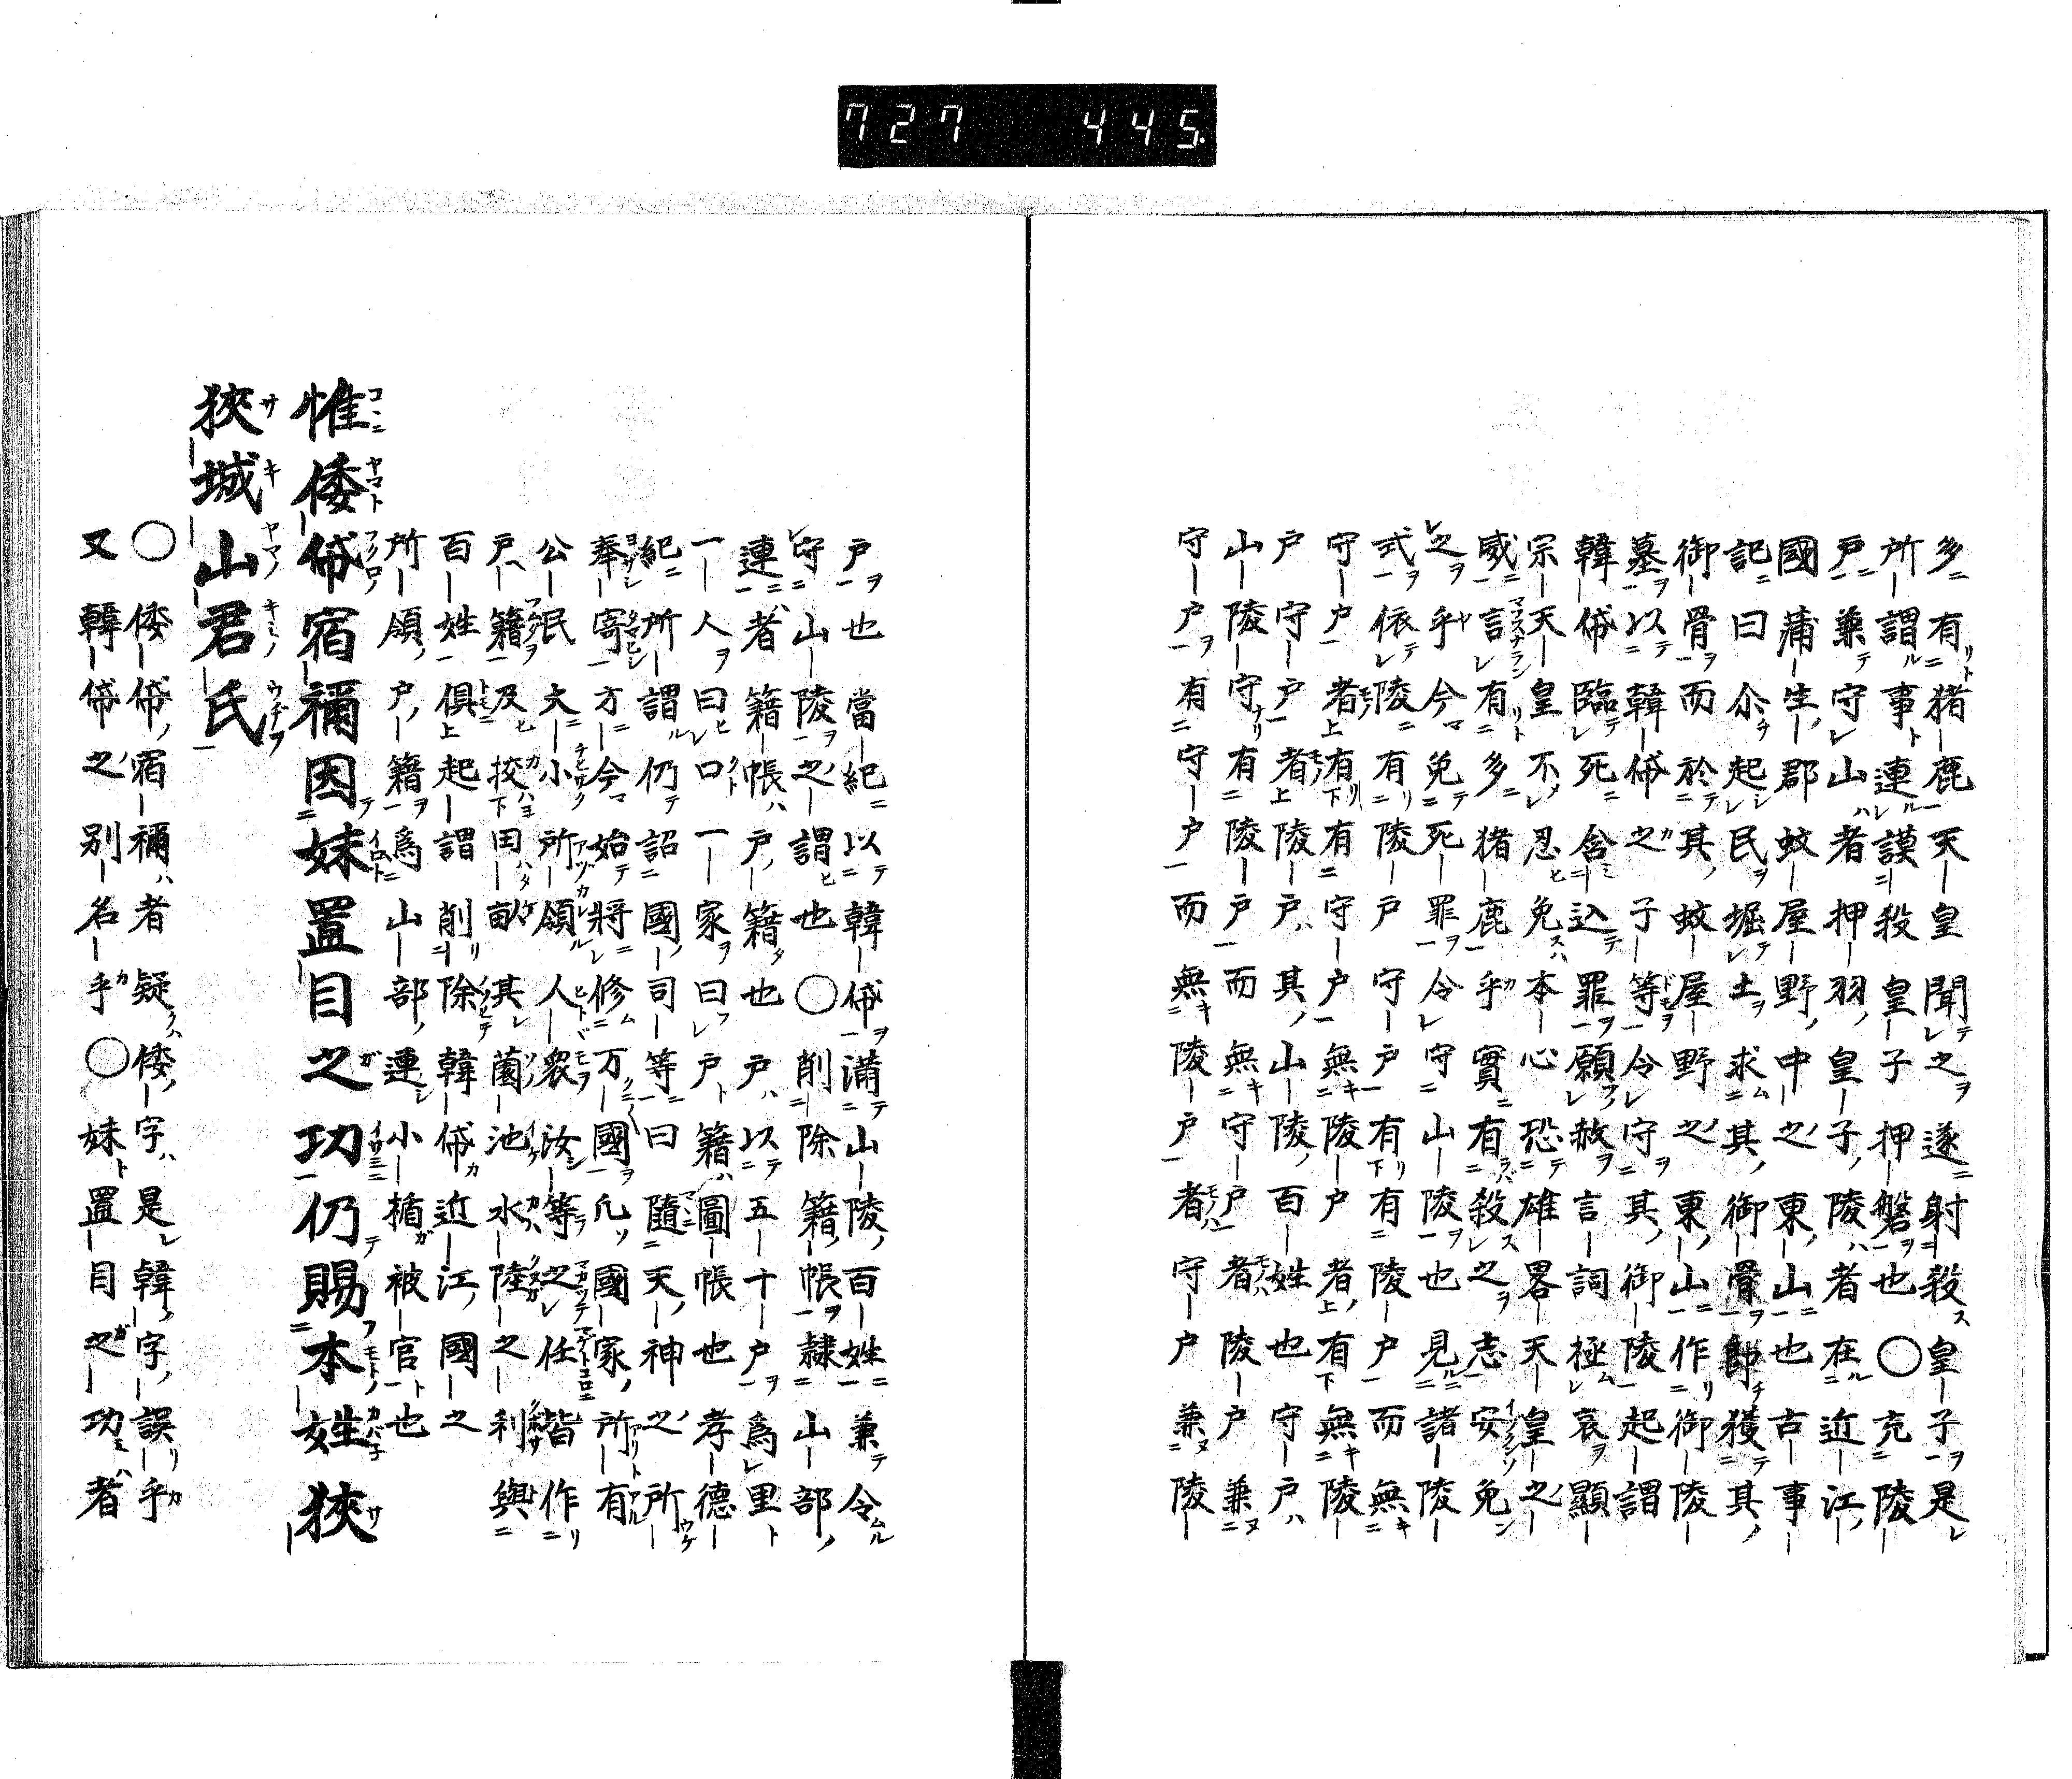 727 445.
多有猪鹿天皇聞之遂射殺皇子是
所謂事連謨殺皇子押磐也○充陵
戸兼守山者押羽皇子陵者在近江
國蒲生郡蚊屋野中之東山也古事
記曰尒起民堀土求其御骨卽獲其
御骨而於其蚊屋野之東山作御陵
墓以韓帒之子等令守其御陵起謂
韓帒臨死含込罪願赦言詞極哀顯
宗天皇不忍免本心恐雄畧天皇之
威言有多猪鹿乎實有殺之志安免
之乎今免死罪令守山陵也見諸陵
式依陵有陵戸守戸有有陵戸而無
守戸者有有守戸無陵戸者有無陵
戸守戸者陵戸其山陵百姓也守戸
山陵守有陵戸而無守戸者陵戸兼
守戸有守戸而無陵戸者守戸兼陵
戸也當紀以韓帒蒲山陵百姓兼令
守山陵之謂也○削除籍帳隷山部
連者籍帳戸籍也戸以五十戸爲里
一人曰口一家曰戸籍圖帳也孝德
紀所謂仍詔國司等曰隨天神之所
奉寄方今始將修万國凡國家所有
公民大小所領人衆汝等之任皆作
戸籍及挍田畝其薗池水陸之利與
百姓俱起謂削除韓帒近江國之
所領戸籍爲山部連小楯被官也
惟倭帒宿禰因妹置目之功仍賜本姓狹
狹城山君氏
○倭帒宿禰者疑倭字是韓字誤乎
又韓帒之別名乎○妹置目之功者